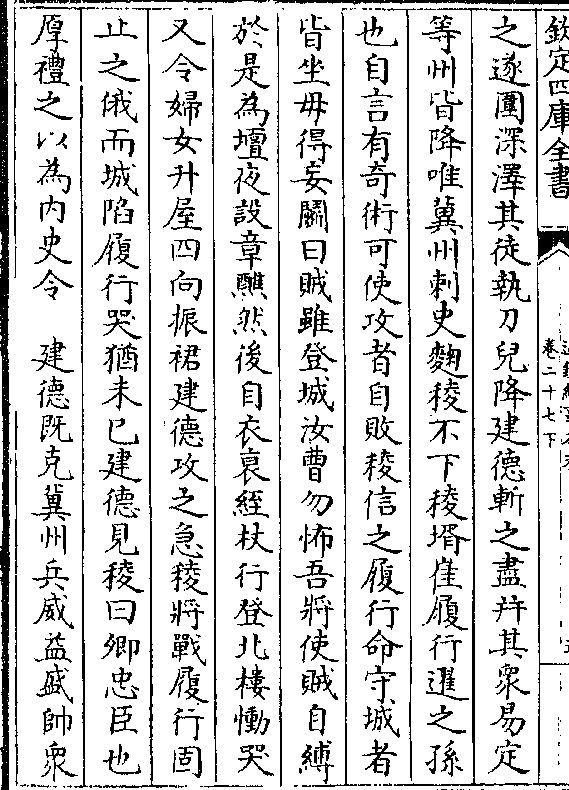 欽定四庫全書
卷二十七下
之遂圍深澤其徒執刀兒降建德斬之盡幷其衆易定
等州皆降唯冀州刺史麴稜不下稜壻崔履行暹之孫
也自言有奇術可使攻者自敗稜信之履行命守城者
皆坐毋得妄鬭曰賊雖登城汝曹勿怖吾將使賊自縛
於是為壇夜設章醮然後自衣衰絰杖行登北樓慟哭
又令婦女升屋四向振裙建德攻之急稜將戰履行固
止之俄而城陷履行哭猶未已建德見稜曰卿忠臣也
厚禮之以為內史令　建德既克冀州兵威益盛帥衆